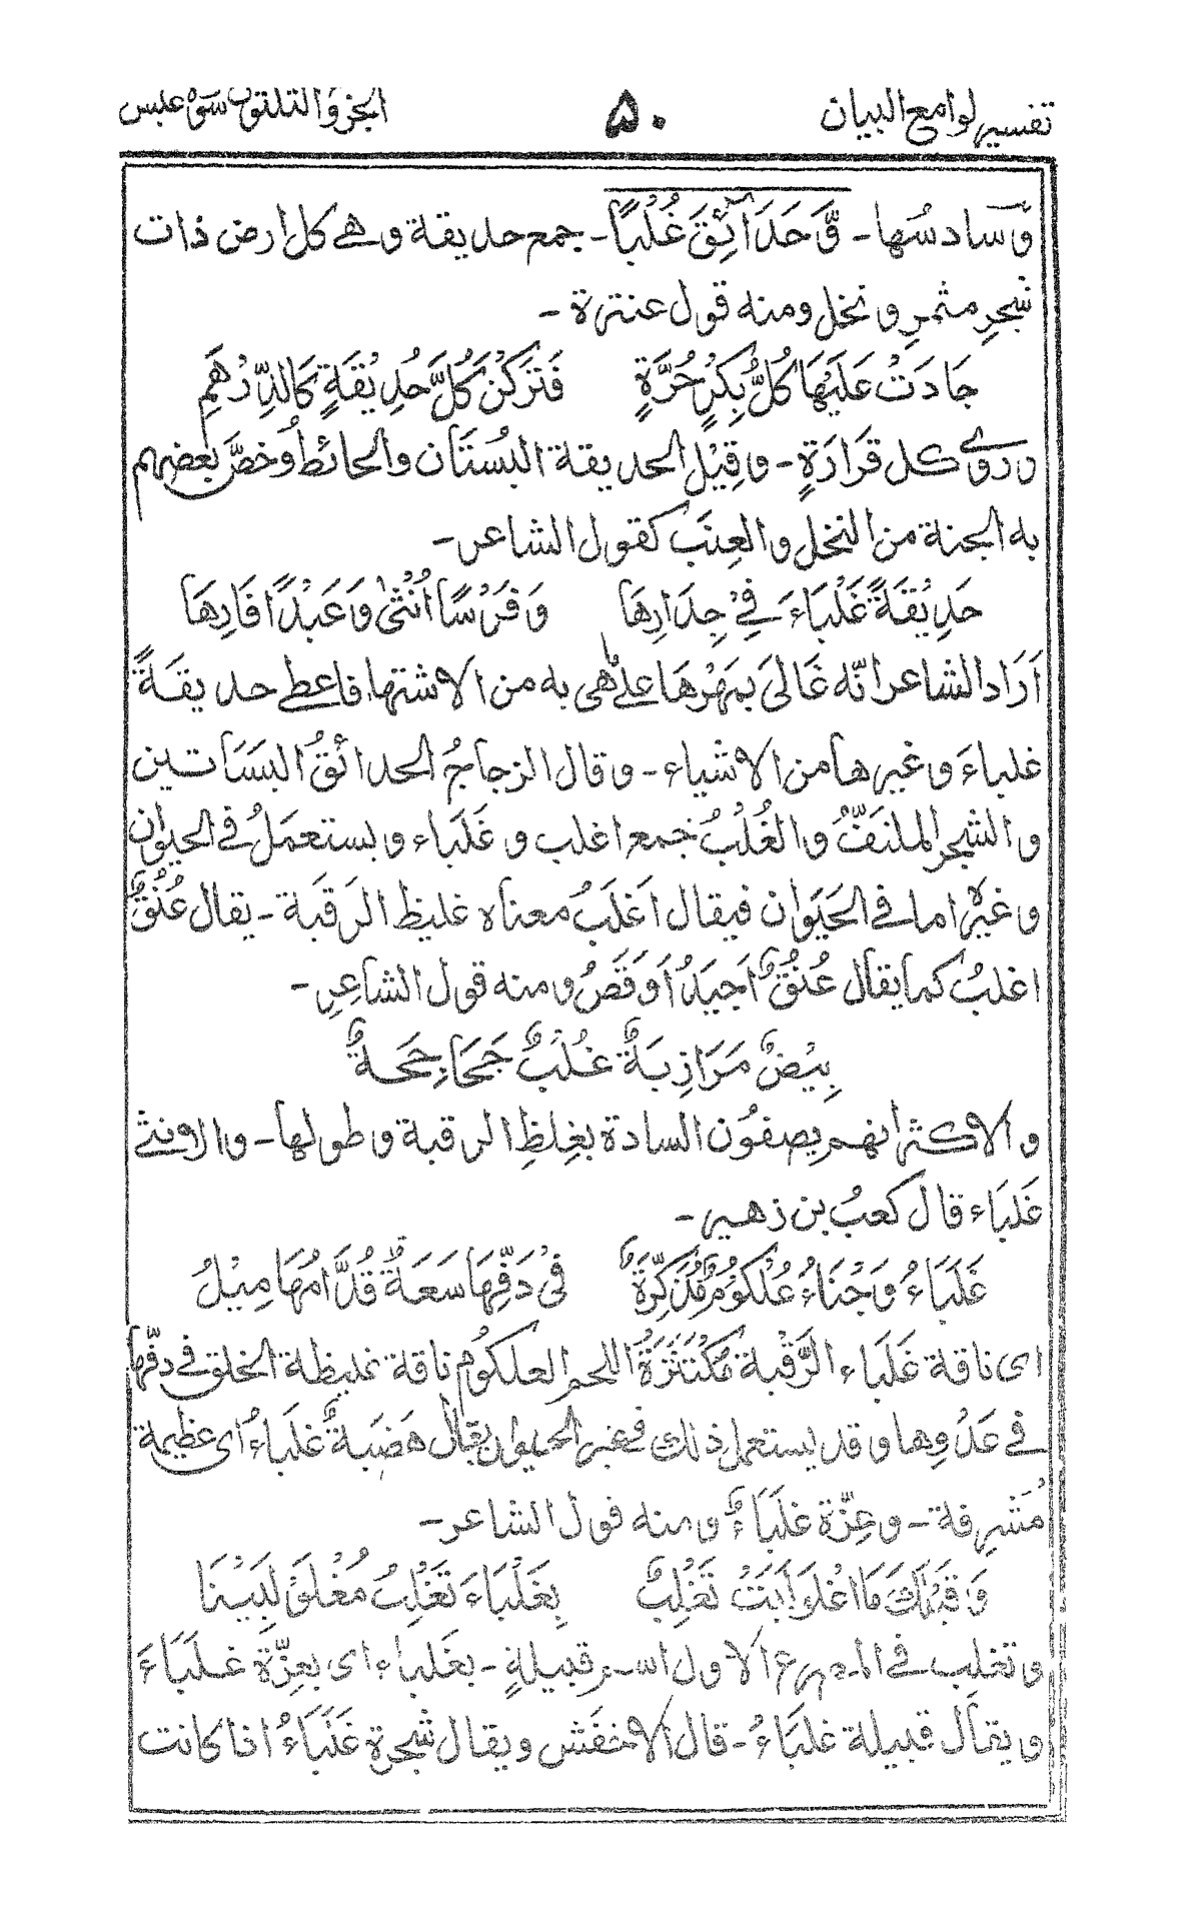 تفسير لوامع البيان ۵۰ الجزؤ الثلثون سورة عبس
وسادسها - وَّحَدَائِقَ غُلْبًا - جمع حديقة وهي كل ارض ذات
شجرِ مثمرِ و نخل ومنه قول عنترة -
جَادَتْ عَلَيْهَا كُلُّ بِكْرٍ حُرَّةٍ فَتَرَكْنَ كُلَّ حَدِيْقَةٍ كَالدِّرْهَمِ
وروى كل قَرَارَةٍ - وقِيْل الحديقة البُسْتَان والحائط وخصَّ بعضهم
به الجنة من النخل والعِنَب كقول الشاعر -
حَدِيْقَةً غَلْبَاءَ فِيْ جِدَارِهَا وَفَرَسًا اُنْثٰى وَعَبْدًا فَارِهَا
اَرَادَ الشاعر انّه غَالَى بمَهْرهَا على ما هى به من الاشتها، فاعطى حديقةً
غلباءَ وغيرها من الاشياء - وقال الزجاجُ الحدائقُ البَسَاتين
والشجر الملتفُّ والغُلْبُ جمع اغلب و غَلْبَاء ويستعمَلُ فى الحيوان
وغيرِه اما فى الحَيَوان فيقال اَغْلَبُ معناه غليظ الرَقَبة - يقال عُنُقٌ
اغلبُ كما يقال عُنُقٌ اَجيَدُ اَوقَصُ ومنه قول الشاعِرِ -
بِيْضٌ مَرَازِبَةٌ غُلْبٌ جَحَاجِحَةٌ
والاكثر انهم يصِفُون السادة بغِلظِ الرقبة وطولها - والانثى
غَلبَاء قال كعبُ بن زهير -
غَلْبَاءُ وَجْنَاءُ عُلْكُوْمٌ مُذَكَّرَةٌ فِىْ دَفِّهَا سَعَةٌ قُدَّامُهَا مِيْلُ
اى ناقة غَلْبَاء الرَّقْبة مُكْتَنِزَةُ اللحم العلكوم ناقة غليظة الخلق فى دفّها
فى عَدْوِها وقد يستعمل ذلك فى غير الحيوان يقال هَضَبةٌ غَلْبَاءُ اى عظيمة
مُشْرِفة - وعِزّة غلبَاءُ ومنه قول الشاعر -
وَقَبْلَكَ مَا اغْلَوْلَبَتْ تَغْلِبٌ بِغَلْبَاءَ تَغْلِبُ مُغْلَوْلِبِيْنَا
وتغلِب فى المصرع الاول اسم قبيلةٍ - بغلباء اى بعِزّة غلبَاءَ
ويقال قبيلة غلبَاءُ - قال الاخفَش ويقال شجرة غَلْبَاءُ اذا كانت